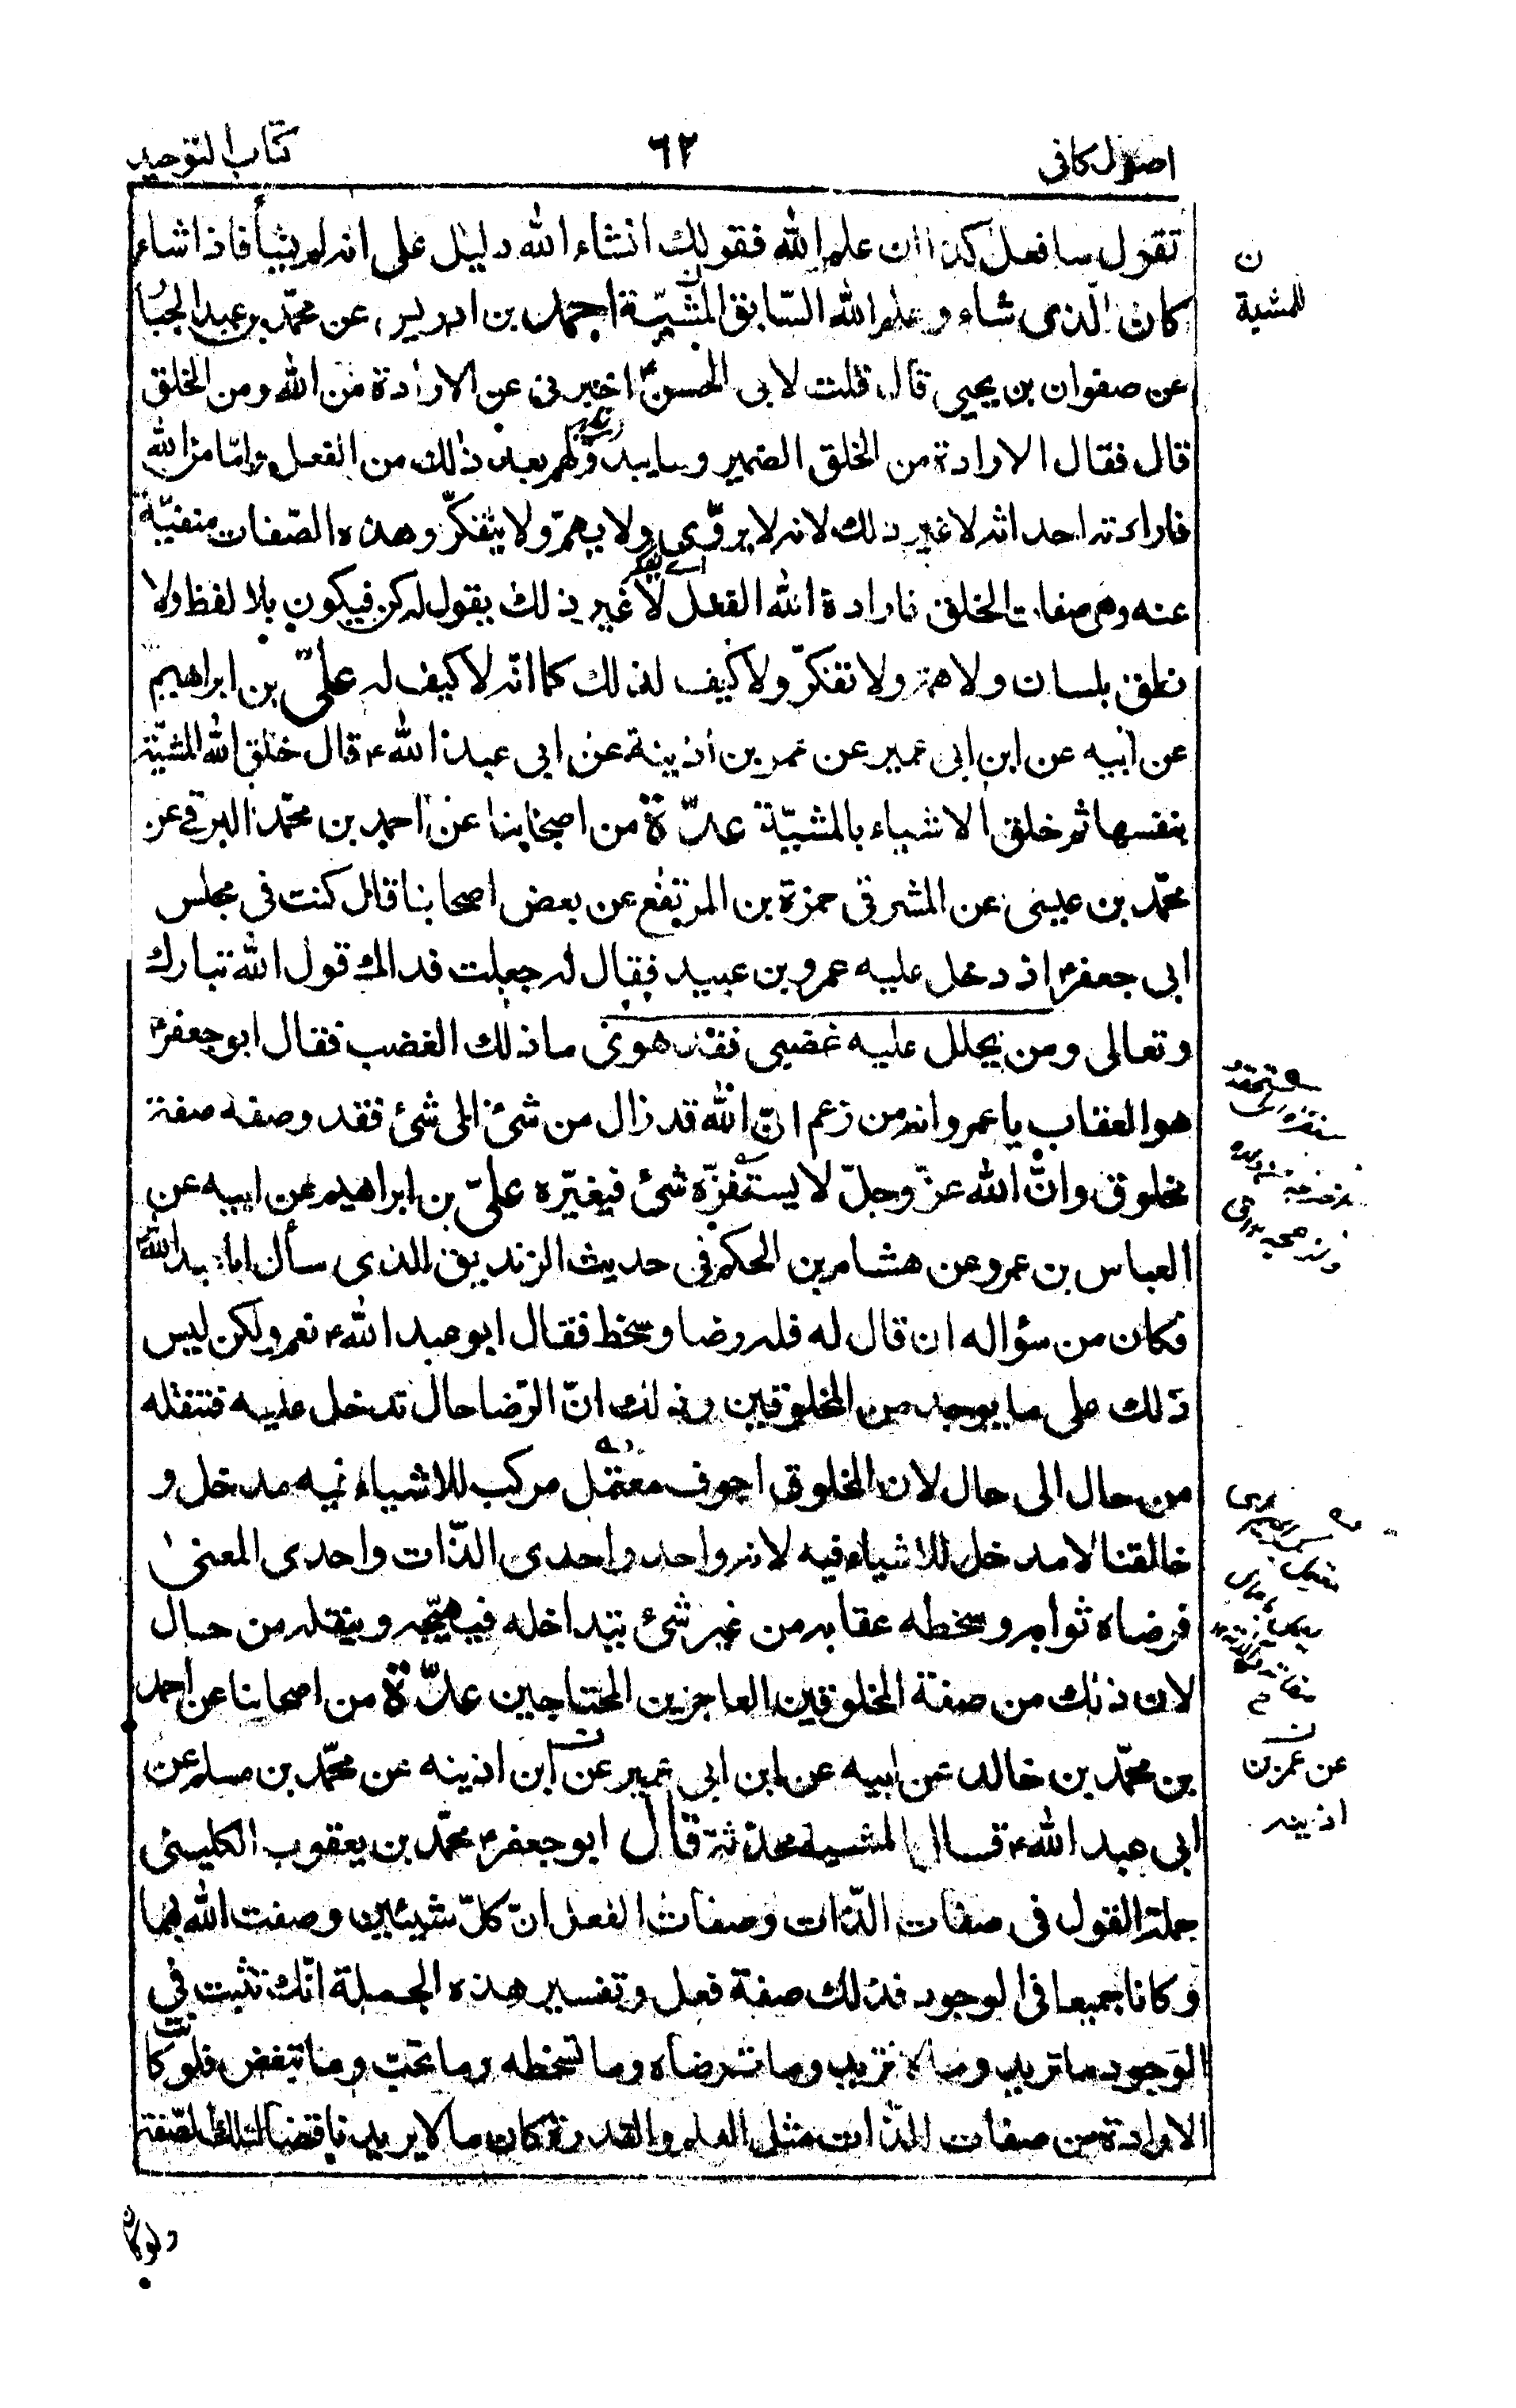 اصول كافى ٦٢ كتاب التوحيد
تقول سافعل كذا ان علم الله فقولك انشاء الله دليل على انه لم يشأ فاذا شاء
كان الّذى شاء وعلم الله السّابق المشيّة احمد بن ادريس، عن محمّد بن عبد الجبّا
عن صفوان بن يحيى قال قلت لابى الحسن؏ اخبرنى عن الارادة من الله ومن الخلق
قال فقال الارادة من الخلق الضمير وما يبدو لهم بعد ذلك من الفعل وامّا من الله
فارادته احداثه لا غير ذلك لانه لا يروّى ولا يهمّ ولا يتفكّر وهذه الصّفات منفيّة
عنه وهى صفات الخلق فارادة الله الفعل لا غير ذلك يقول له كن فيكون بلا لفظ ولا
نطق بلسان ولا همّة ولا تفكّر ولا كيف لذلك كما انّه لا كيف له علىّ بن ابراهيم
عن ابيه عن ابن ابى عمير عن عمر بن اذينة عن ابى عبد الله؏ قال خلق الله المشيّة
بنفسها ثم خلق الاشياء بالمشيّة عدّة من اصحابنا عن احمد بن محمّد البرقى عن
محمّد بن عيسى عن المشرقى حمزة بن المرتفع عن بعض اصحابنا قال كنت فى مجلس
ابى جعفر؏ اذ دخل عليه عمرو بن عبيد فقال له جعلت فداك قول الله تبارك
وتعالى ومن يحلل عليه غضبى فقد هوى ما ذلك الغضب فقال ابو جعفر؏
هو العقاب يا عمرو انه من زعم انّ الله قد زال من شئ الى شئ فقد وصفه صفة
مخلوق وانّ الله عزّ وجلّ لا يستفزّه شئ فيغيّره علىّ بن ابراهيم عن ابيه عن
العباس بن عمرو عن هشام بن الحكم فى حديث الزنديق الذى سأل ابا عبد الله؏
فكان من سؤاله ان قال له فله رضا وسخط فقال ابو عبد الله؏ نعم ولكن ليس
ذلك على ما يوجد من المخلوقين وذلك انّ الرّضا حال تدخل عليه فتنقله
من حال الى حال لان المخلوق اجوف معتمل مركب للاشياء فيه مدخل و
خالقنا لا مدخل للاشياء فيه لانه واحد واحدى الذّات واحدى المعنى
فرضاه ثوابه وسخطه عقابه من غير شئ يتداخله فيهيّجه وينقله من حال
لان ذلك من صفة المخلوقين العاجزين المحتاجين عدّة من اصحابنا عن احمد
بن محمّد بن خالد عن ابيه عن ابن ابى عمير عن ابن اذينه عن محمّد بن مسلم عن
ابى عبد الله؏ قال المشية محدثة قال ابو جعفر؏ محمّد بن يعقوب الكلينى
جملة القول فى صفات الذّات وصفات الفعل انّ كلّ شيئين وصفت الله بهما
وكانا جميعا فى الوجود فذلك صفة فعل وتفسير هذه الجملة انّك تثبت فى
الوجود ما تريد وما لا تريد وما ترضاه وما تسخطه وما تحبّ وما تبغض فلو كا نت
الارادة من صفات الذّات مثل العلم والقدرة كان ما لا يريد ناقضا لتلك الصّفة
ن
للمشية
اے تفكر
ن
عن عمر بن
اذينه
ولو كان